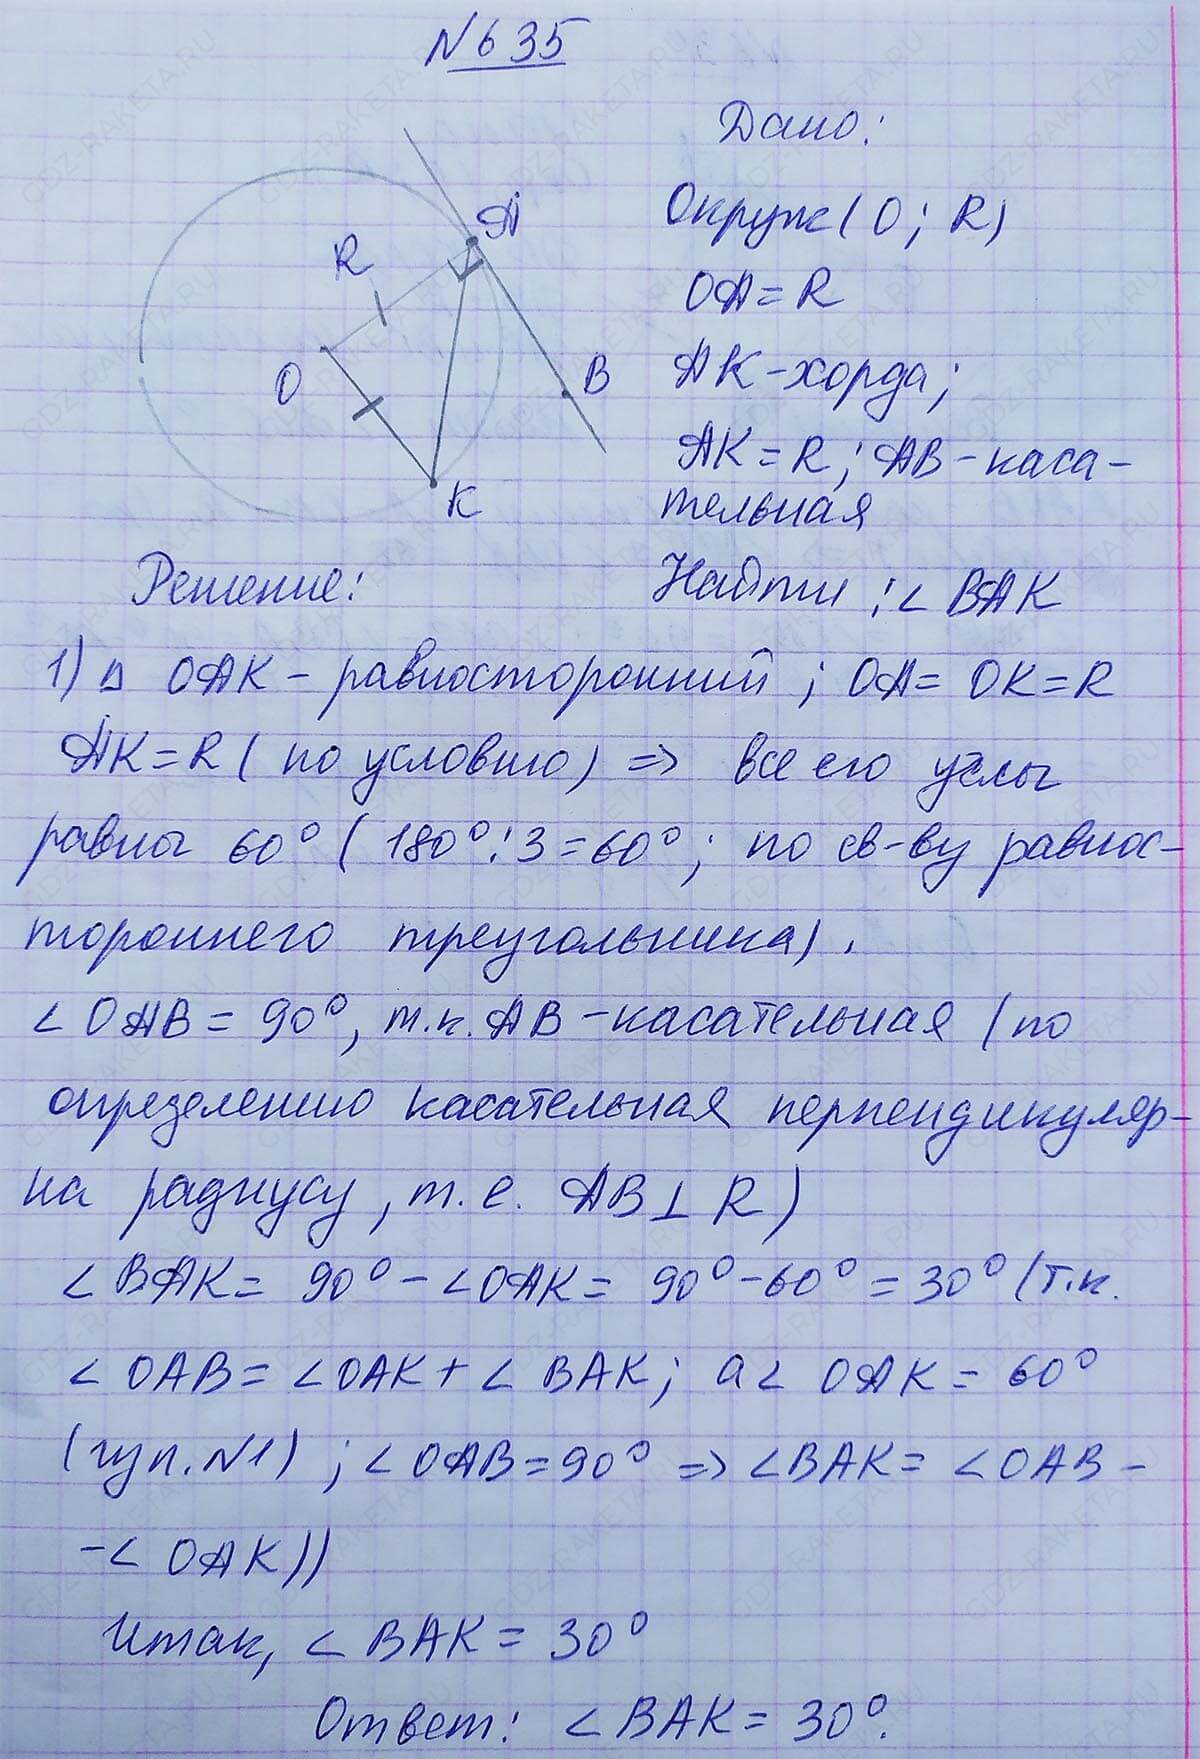 N 635
Дано:
Окруж(O; R)
OA = R
AK - хорда;
AK = R; AB - каса-
тельная
Найти: ∠ BAK
A
R
O
B
K
Решение:
1) Δ OAK - равносторонний; OA = OK = R
AK = R (по условию) => все его углы
равны 60° (180°:3 = 60°; по св-ву равнос-
тороннего треугольника).
∠ OAB = 90°, т.к. AB - касательная (по
определению касательная перпендикуляр-
на радиусу, т.е. AB ⊥ R)
∠ BAK = 90° - ∠OAK = 90° - 60° = 30° (т.к.
∠ OAB = ∠OAK + ∠ BAK; а ∠ OAK = 60°
(из п. N1); ∠OAB = 90° => ∠BAK = ∠OAB -
-∠ OAK))
Итак, ∠ BAK = 30°
Ответ: ∠ BAK = 30°.